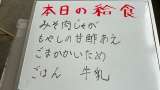 本日の給食
みそ肉じゃが
もやしの甘酢あえ
ごまかかいため
ごはん 牛乳